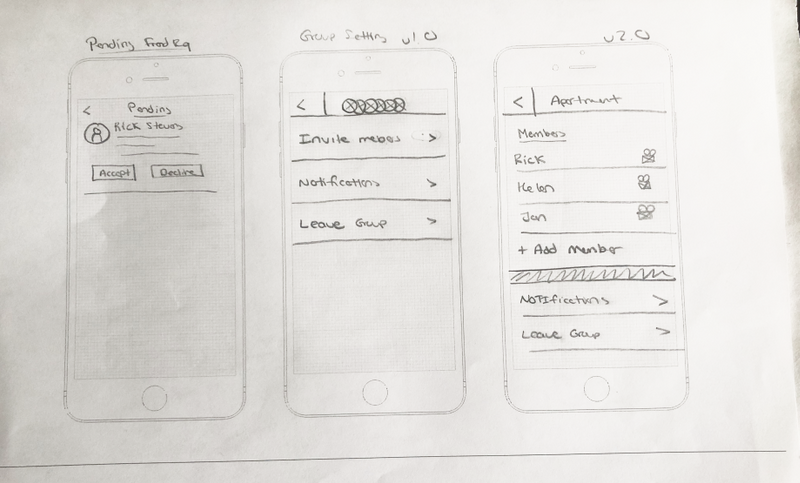 Pending Frnd Rq
<
Pending
Rick Steves
Accept
Decline
Group Setting v1.0
<
Invite mebes >
Notifications >
Leave Group >
v2.0
< Apartment
Members
Rick
Helen
Jan
+ Add Member
Notifications >
Leave Group >